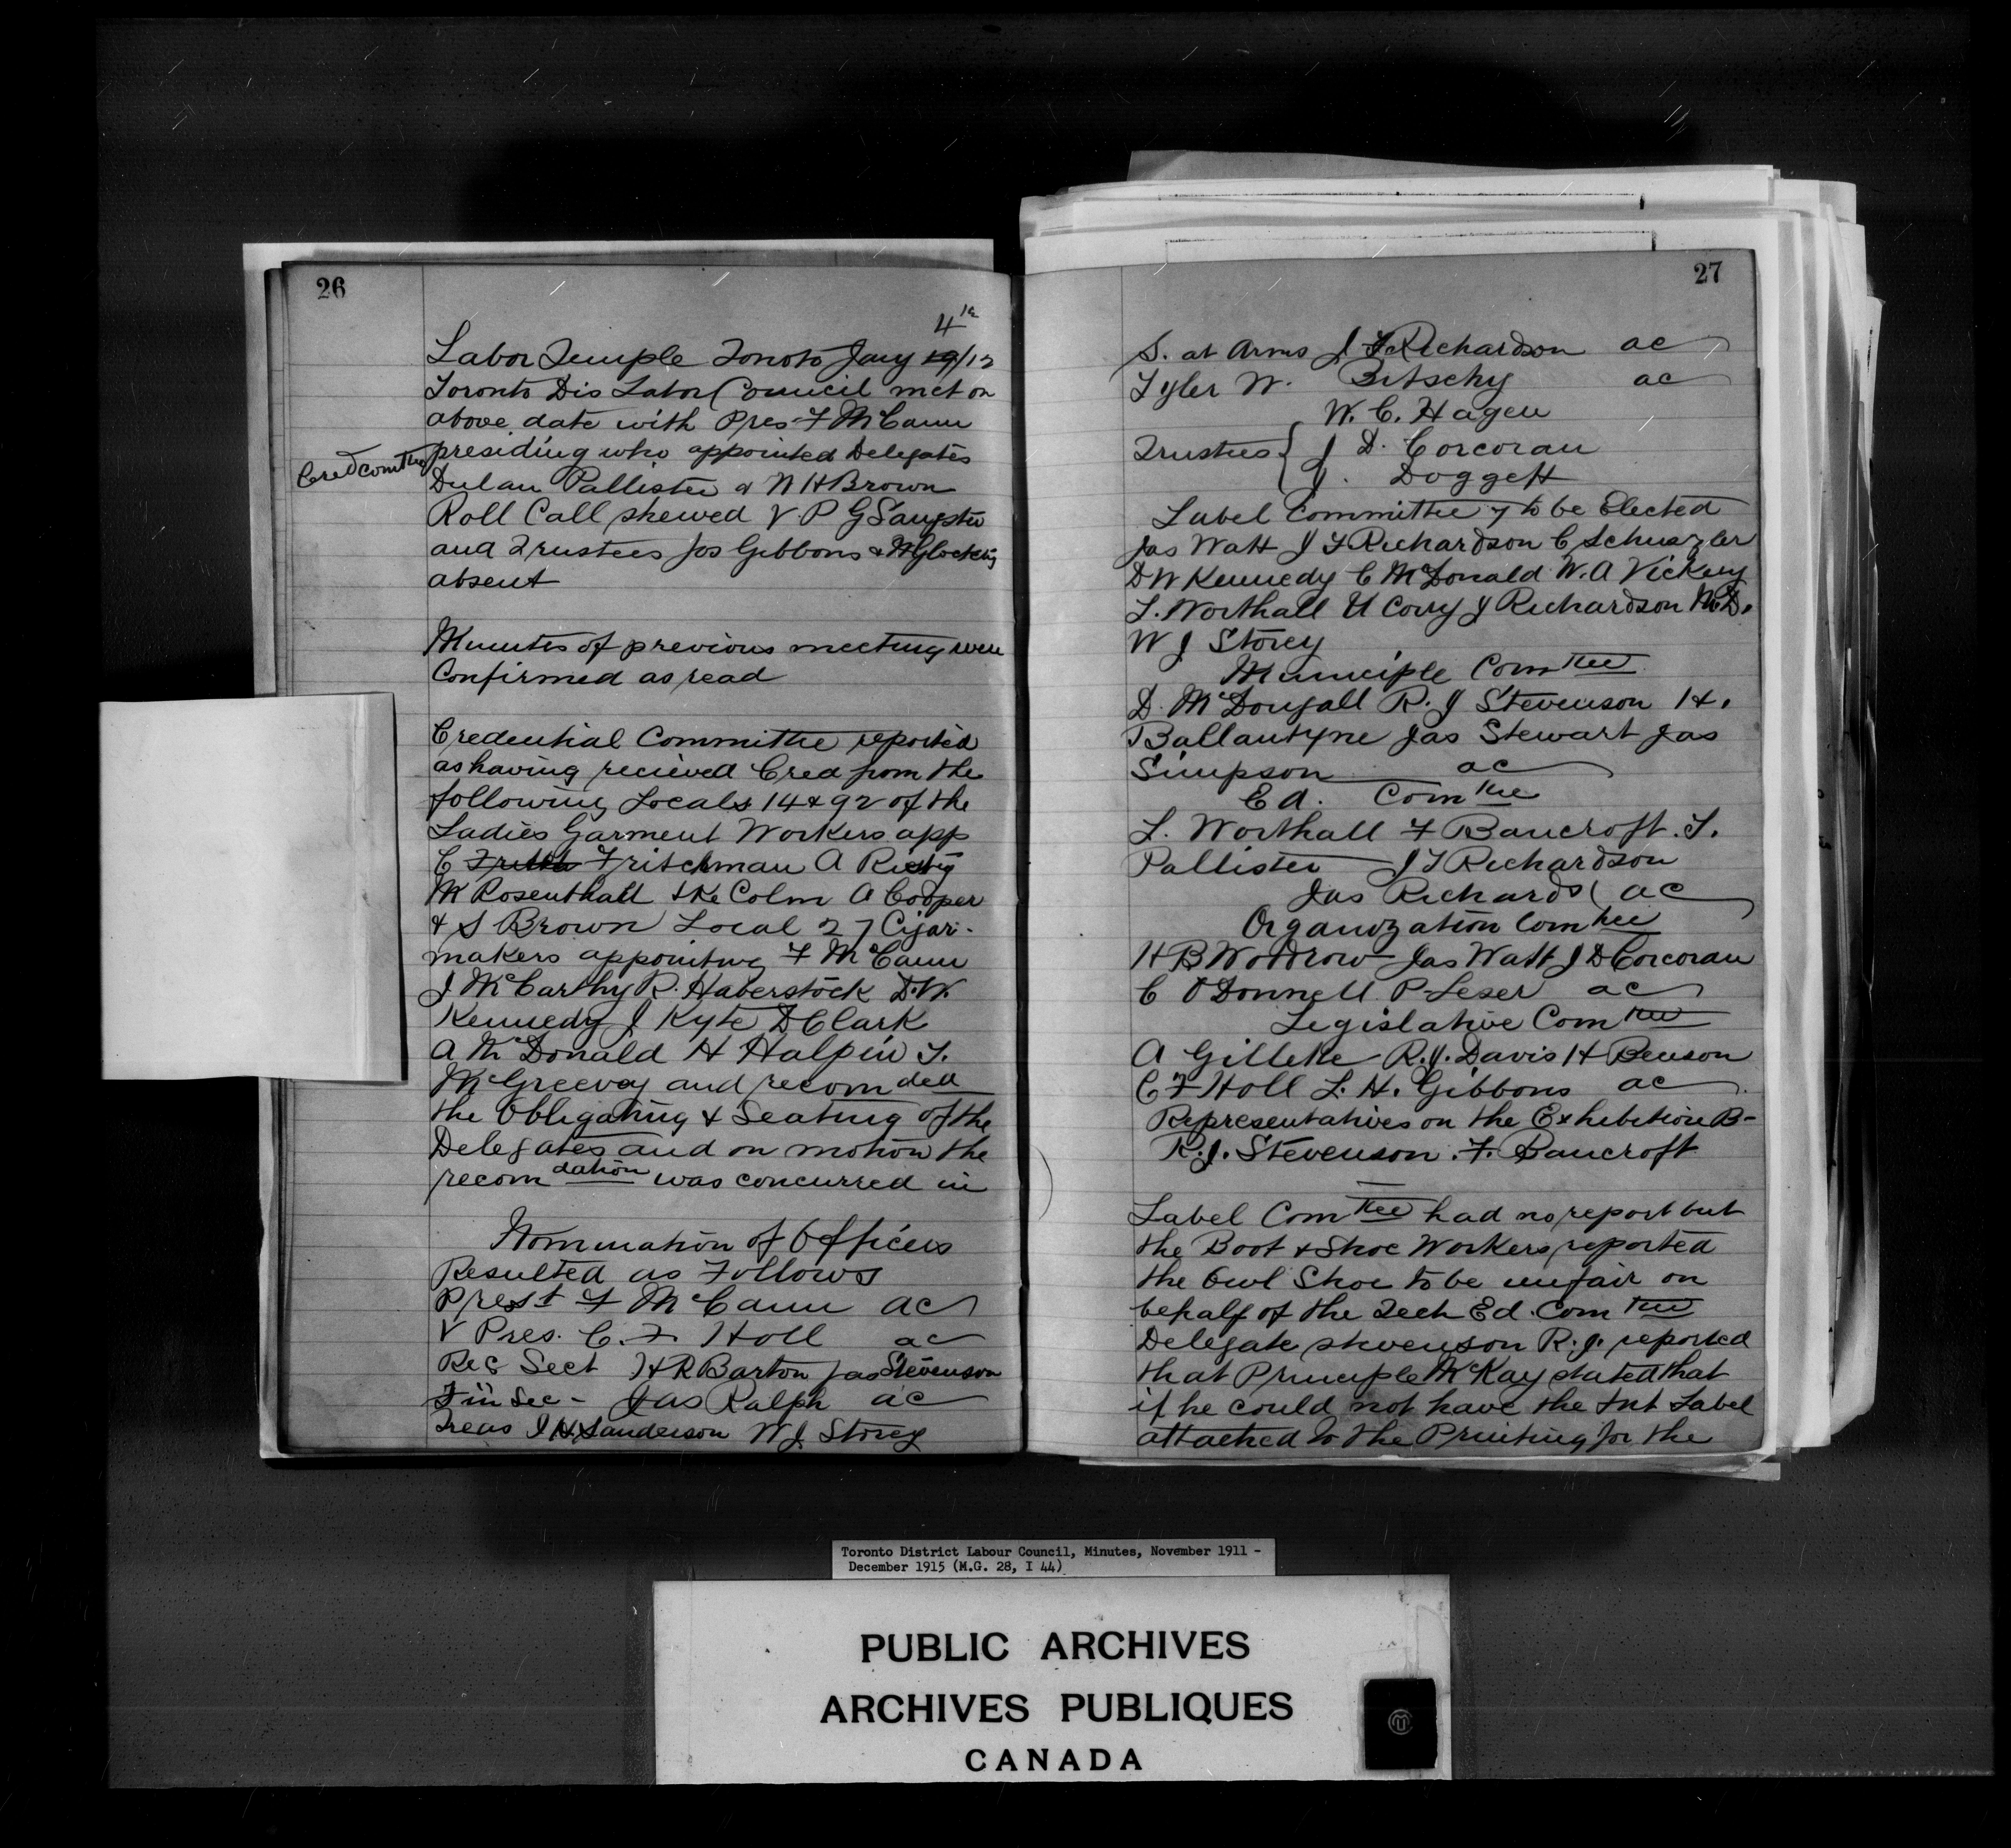 26
4th
Labor Temple Tonoto Jany 19/12
Toronto Dis Labor Council met on
above date with Pres F McCann
presiding who appointed Delegates
Cred comttee
Dulan Pallister & W H Brown
Roll Call shewed V. P G Sangster
and Trustees Jos Gibbons & W Glocking
absent
Minutes of previous meeting were
Confirmed as read
Credential Committee reported
as having recieved Cred from the
following Locals 14 & 92 of the
Ladies Garment Workers app
C Fritchman A
M Rosenthall A Cooper
& S Brown Local 27 Cigar-
makers appointing F McCann
J McCarthy R. Haberstock D.W.
Kennedy J Kyte D Clark
A McDonald H Halpin T.
McGreevey and recomded
the Obligating & Seating of the
Delegates and on motion the
recomdation was concurred in
Nomination of Officers
Resulted as Follows
Prest F McCann ac
V Pres. C. F. Holl ac
Rec Sect H R Barton Jas Stevenson
Fin Sec - Jas Ralph ac
Treas J H Sanderson W J Storey
27
S. at Arms J F Richardson ac
Tyler W. Bitschy ac
W. C. Hagen
Trustees { J D. Corcoran
J. Doggett
Label Committee 7 to be Elected
Jas Watt J F Richardson C Schuszler
D W Kennedy C McDonald W. A Vickery
T. Worthall U Corry J Richardson McD.
W J Storey
Municiple Comttee
D. McDougall R. J Stevenson H.
Ballantyne Jas Stewart Jas
Simpson ac
Ed. Comttee
T. Worthall F Bancroft. T.
Pallister J F Richardson
Jas Richards ac
Organization Comttee
H B Woodrow Jas Watt J D Corcoran
C O'Donnell P Leser ac
Legislative Comttee
A Gilleke R. J. Davis H Benson
C F Holl T. H. Gibbons ac
Representatives on the Exhibition B-
R. J. Stevenson. F. Bancroft
Label Comttee had no report but
the Boot & Shoe Workers reported
the Owl Shoe to be unfair on
behalf of the Tech Ed. Comttee
Delegate Stevenson R. J. reported
that Principle McKay stated that
if he could not have the Int Label
attached to the Printing for the
Toronto District Labour Council, Minutes, November 1911 -
December 1915 (M.G. 28, I 44)
PUBLIC ARCHIVES
ARCHIVES PUBLIQUES
CANADA